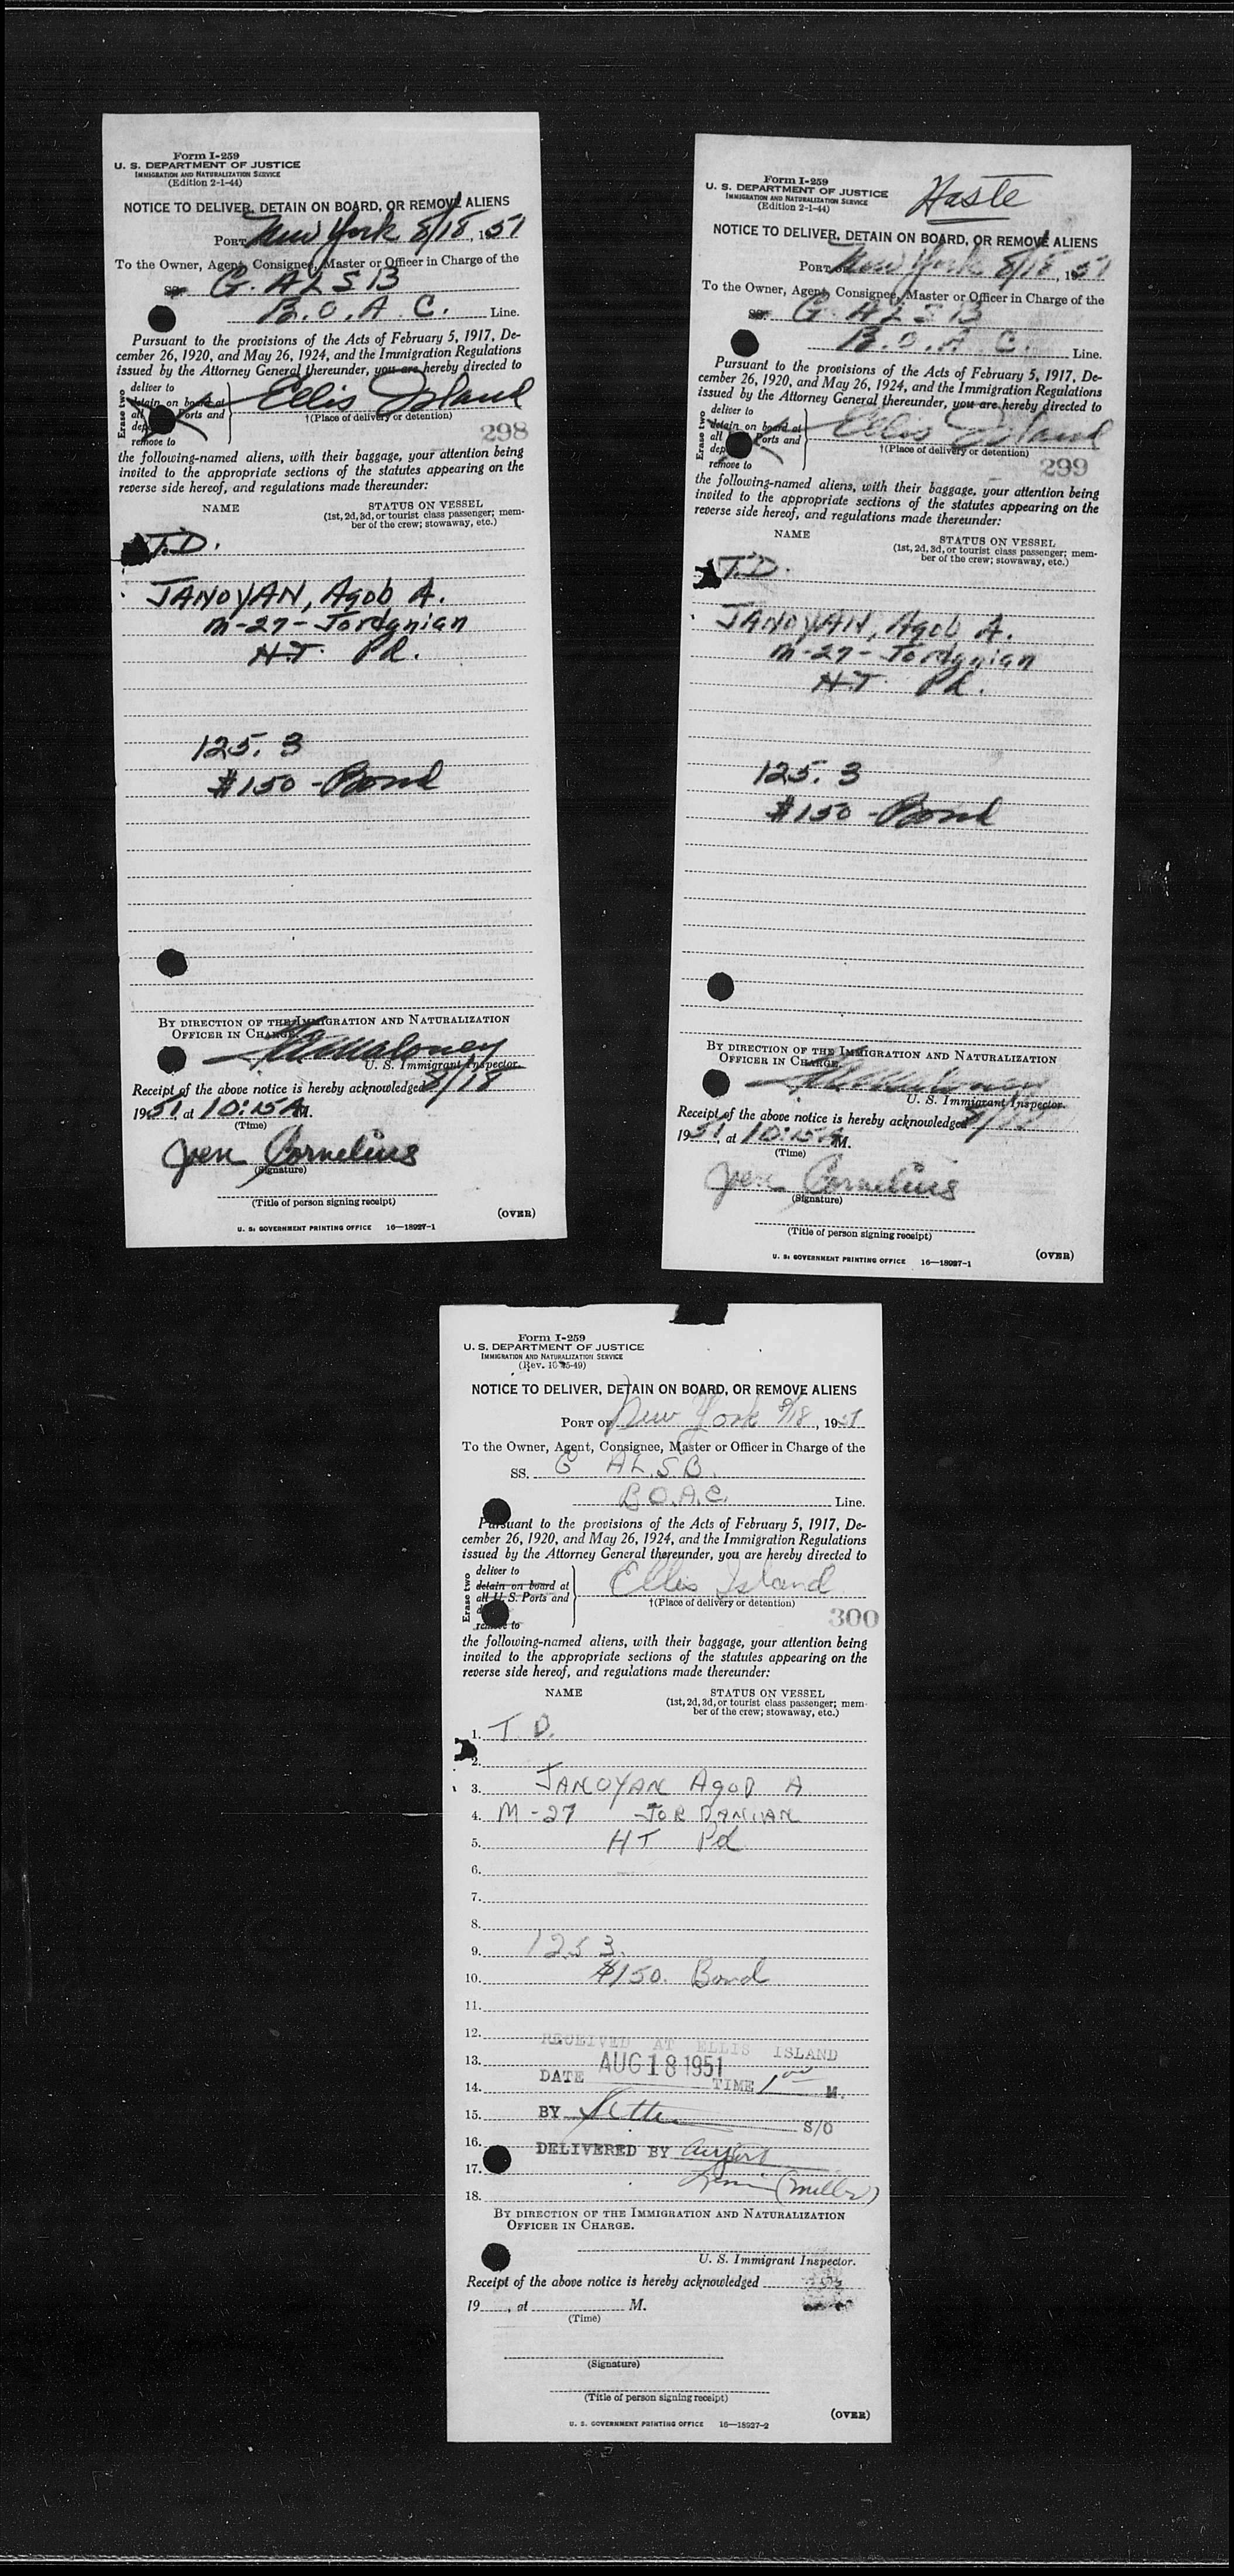 Form I-259
U. S. DEPARTMENT OF JUSTICE
IMMIGRATION AND NATURALIZATION SERVICE
(Edition 2-1-44)
NOTICE TO DELIVER, DETAIN ON BOARD, OR REMOVE ALIENS
PORT New York 8/18, 1951
To the Owner, Agent, Consignee, Master or Officer in Charge of the
SS. G. ALSB
B.O.A.C. Line.
Pursuant to the provisions of the Acts of February 5, 1917, De-
cember 26, 1920, and May 26, 1924, and the Immigration Regulations
issued by the Attorney General thereunder, you are hereby directed to
Erase two
deliver to
detain on board at
all Ports and
dep
remove to
Ellis Island
†(Place of delivery or detention)
298
the following-named aliens, with their baggage, your attention being
invited to the appropriate sections of the statutes appearing on the
reverse side hereof, and regulations made thereunder:
NAME STATUS ON VESSEL
(1st, 2d, 3d, or tourist class passenger; mem-
ber of the crew; stowaway, etc.)
T.D.
JANOYAN, Agob A.
M-27-Jordanian
HT Pd.
125. 3
$150 - Bond
BY DIRECTION OF THE IMMIGRATION AND NATURALIZATION
OFFICER IN CHARGE.
Maloney
U. S. Immigrant Inspector.
Receipt of the above notice is hereby acknowledged 8/18
1951, at 10:15 A M.
(Time)
Cornelius
(Signature)
(Title of person signing receipt)
(OVER)
U. S. GOVERNMENT PRINTING OFFICE 16—18927-1
Form I-259
U. S. DEPARTMENT OF JUSTICE
IMMIGRATION AND NATURALIZATION SERVICE
(Edition 2-1-44)
Haste
NOTICE TO DELIVER, DETAIN ON BOARD, OR REMOVE ALIENS
PORT OF New York 8/18, 1951
To the Owner, Agent, Consignee, Master or Officer in Charge of the
SS. G. ALSB
B.O.A.C. Line.
Pursuant to the provisions of the Acts of February 5, 1917, De-
cember 26, 1920, and May 26, 1924, and the Immigration Regulations
issued by the Attorney General thereunder, you are hereby directed to
Erase two
deliver to
detain on board at
all Ports and
dep
remove to
Ellis Island
†(Place of delivery or detention)
299
the following-named aliens, with their baggage, your attention being
invited to the appropriate sections of the statutes appearing on the
reverse side hereof, and regulations made thereunder:
NAME STATUS ON VESSEL
(1st, 2d, 3d, or tourist class passenger; mem-
ber of the crew; stowaway, etc.)
T.D.
JANOYAN, Agob A.
M-27-Jordanian
HT Pd.
125. 3
$150 - Bond
BY DIRECTION OF THE IMMIGRATION AND NATURALIZATION
OFFICER IN CHARGE.
Maloney
U. S. Immigrant Inspector.
Receipt of the above notice is hereby acknowledged 8/18
1951, at 10:15 A M.
(Time)
Cornelius
(Signature)
(Title of person signing receipt)
U. S. GOVERNMENT PRINTING OFFICE 16—18927-1
(OVER)
Form I-259
U. S. DEPARTMENT OF JUSTICE
IMMIGRATION AND NATURALIZATION SERVICE
NOTICE TO DELIVER, DETAIN ON BOARD, OR REMOVE ALIENS
PORT OF New York 8/18, 1951
To the Owner, Agent, Consignee, Master or Officer in Charge of the
SS. G ALSB.
B.O.A.C. Line.
Pursuant to the provisions of the Acts of February 5, 1917, De-
cember 26, 1920, and May 26, 1924, and the Immigration Regulations
issued by the Attorney General thereunder, you are hereby directed to
Erase two
deliver to
detain on board at
all U. S. Ports and
remove to
Ellis Island
†(Place of delivery or detention)
300
the following-named aliens, with their baggage, your attention being
invited to the appropriate sections of the statutes appearing on the
reverse side hereof, and regulations made thereunder:
NAME STATUS ON VESSEL
(1st, 2d, 3d, or tourist class passenger; mem-
ber of the crew; stowaway, etc.)
1. T. D.
2.
3. JANOYAN Agop A
4. M-27 JORDANIAN
5. HT Pd
6.
7.
8.
9. 125 3.
10. $150. Bond
11.
12. RECEIVED AT ELLIS ISLAND
13. AUG 18 1951
14. DATE TIME 1 00 M.
15. BY S/O
16. DELIVERED BY Airport
17. (Miller)
18.
BY DIRECTION OF THE IMMIGRATION AND NATURALIZATION
OFFICER IN CHARGE.
U. S. Immigrant Inspector.
Receipt of the above notice is hereby acknowledged
19 , at M.
(Time)
(Signature)
(Title of person signing receipt)
(OVER)
U. S. GOVERNMENT PRINTING OFFICE 16—18927-2